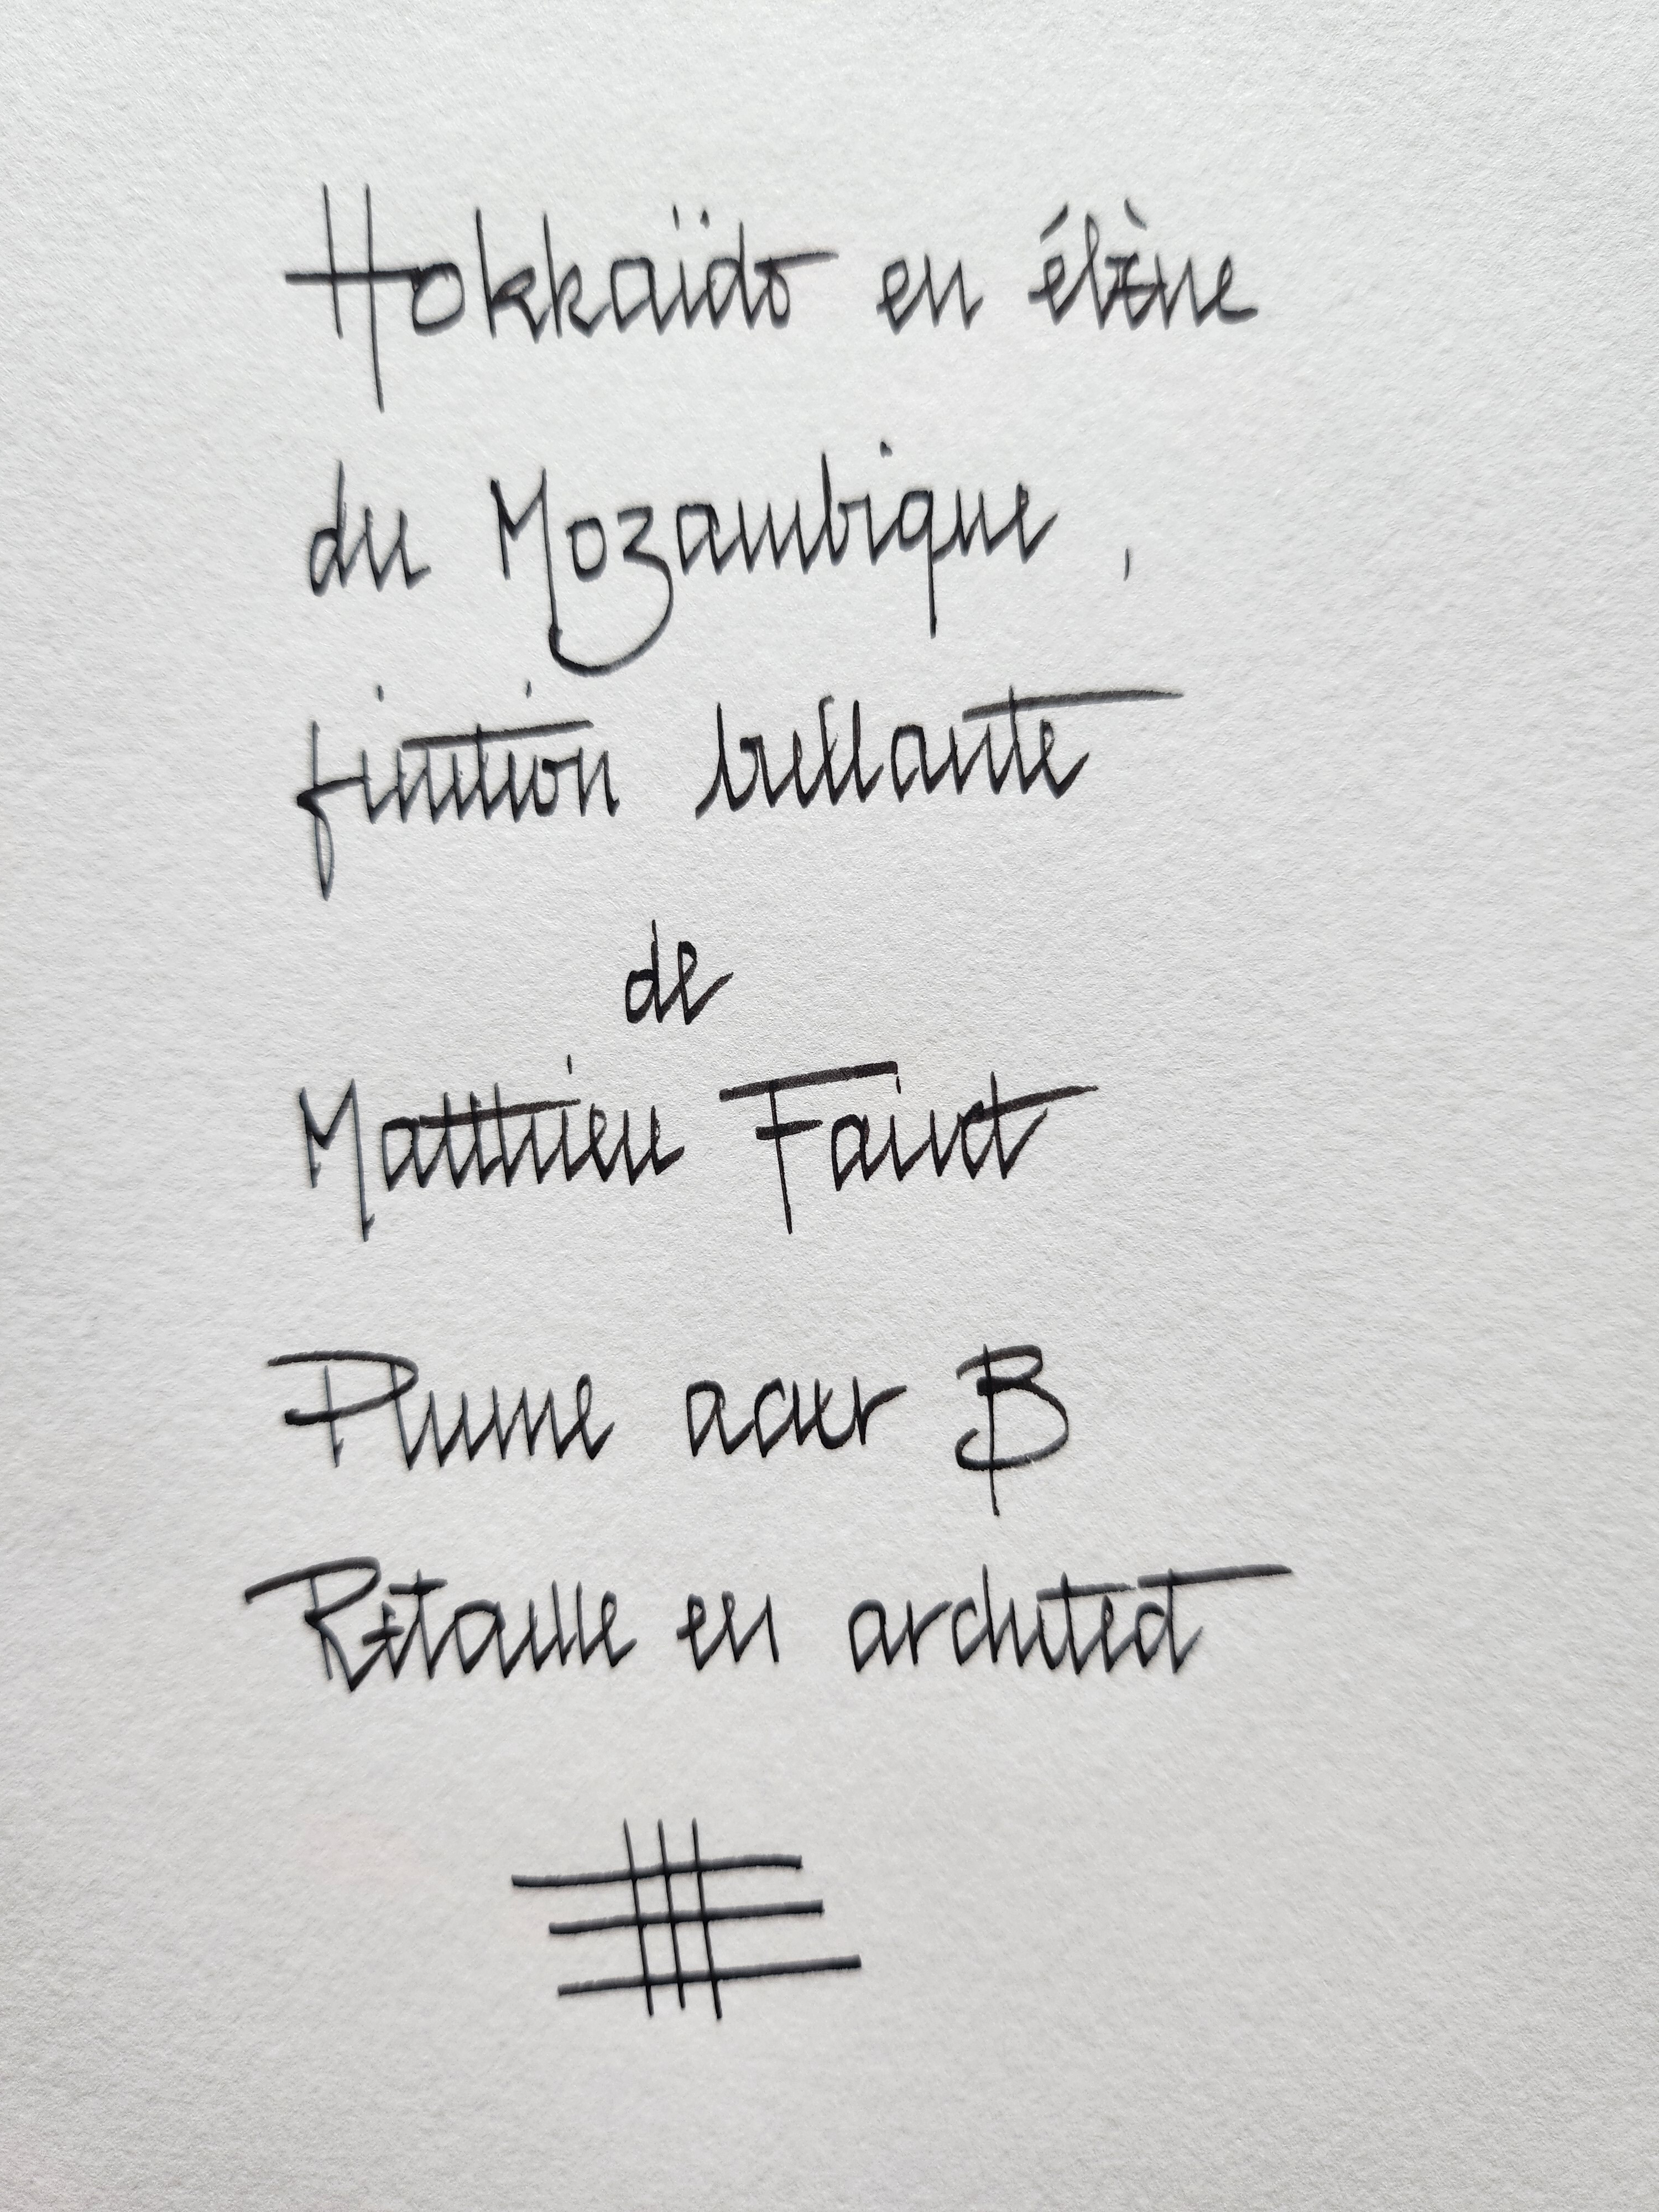 Hokkaïdo en ébène
du Mozambique,
finition brillante
de
Matthieu Faivet
Plume acier B
Retaille en architect